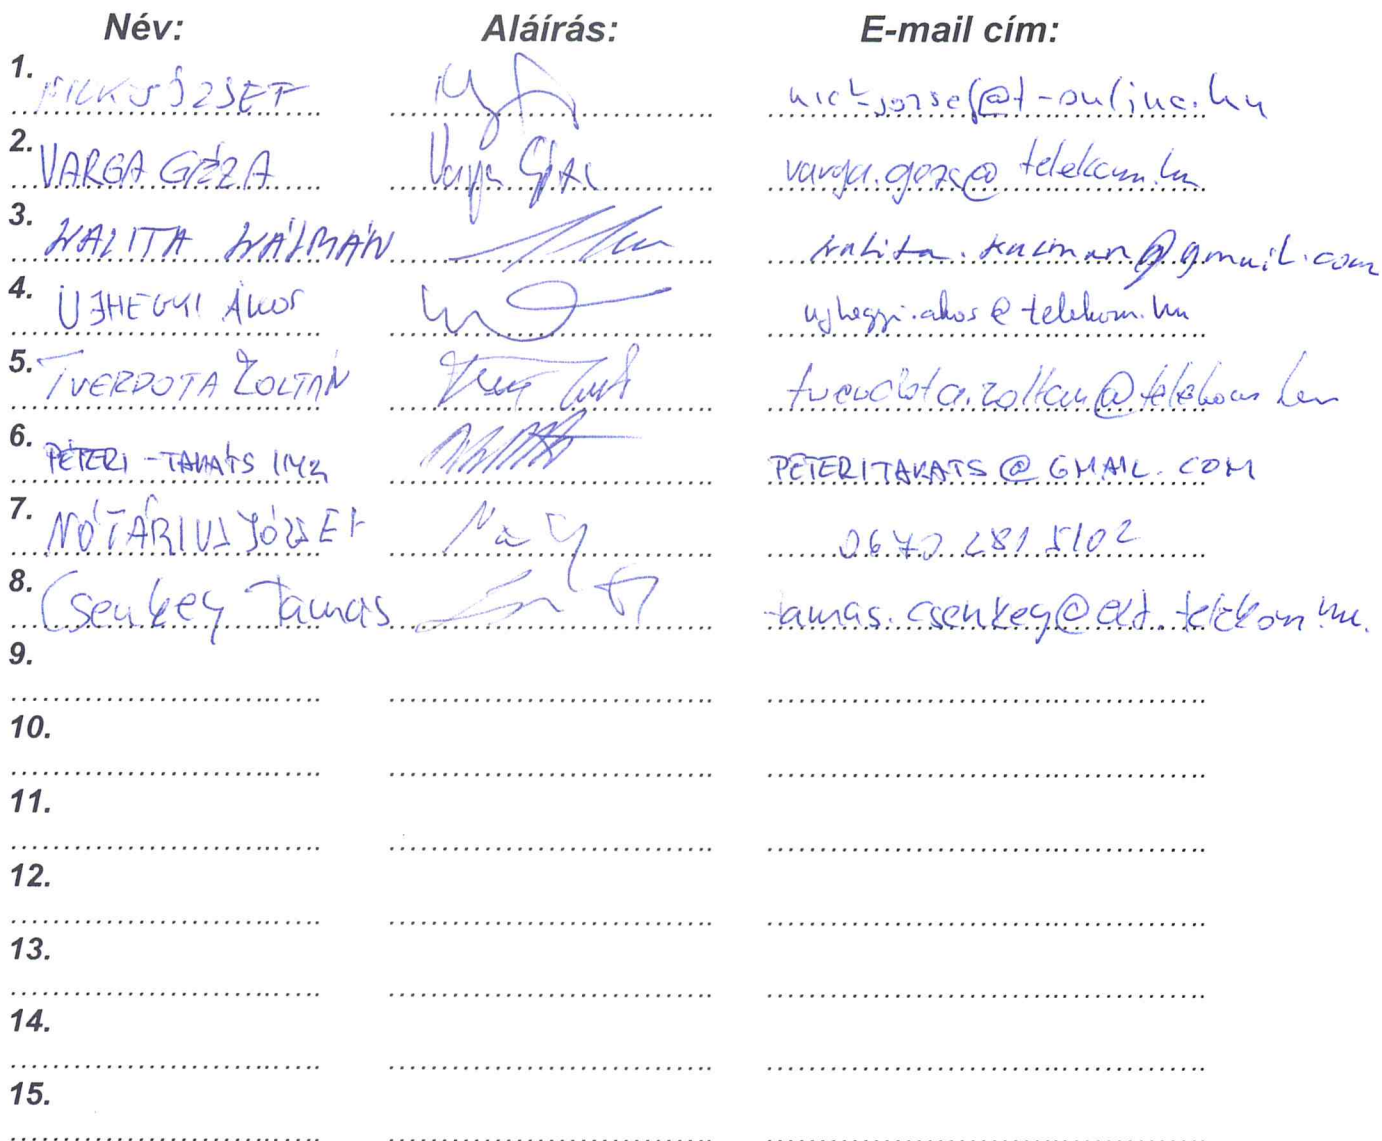 Név: Aláírás: E-mail cím:
1. JÓZSEF
2. VARGA GÉZA Varga Géza varga.geza@telekom.hu
3. KALITA KÁLMÁN kalita.kalman@gmail.com
4. UJHEGYI ÁKOS ujhegyi.akos@telekom.hu
5. TVERDOTA ZOLTÁN tverdota.zoltan@telekom.hu
6. PÉTERI-TAKÁTS PETERITAKATS@GMAIL.COM
7. NÓTÁRIUS JÓZSEF 0670 281 5102
8. Csenkey Tamás tamas.csenkey@ext.telekom.hu.
9.
10.
11.
12.
13.
14.
15.